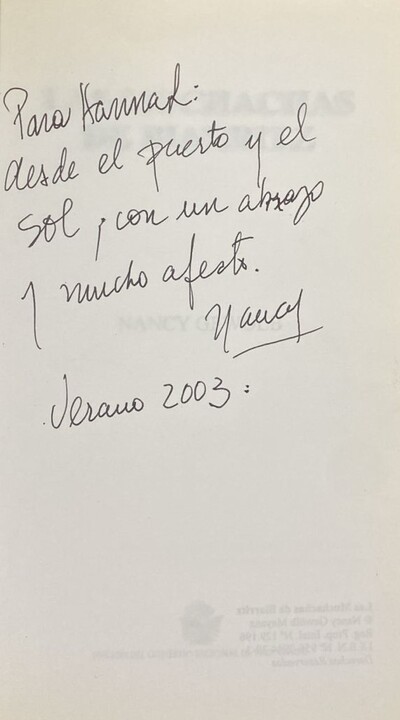 Para Hannah:
desde el puerto y el
sol, con un abrazo
y mucho afecto.
Nancy
Verano 2003: